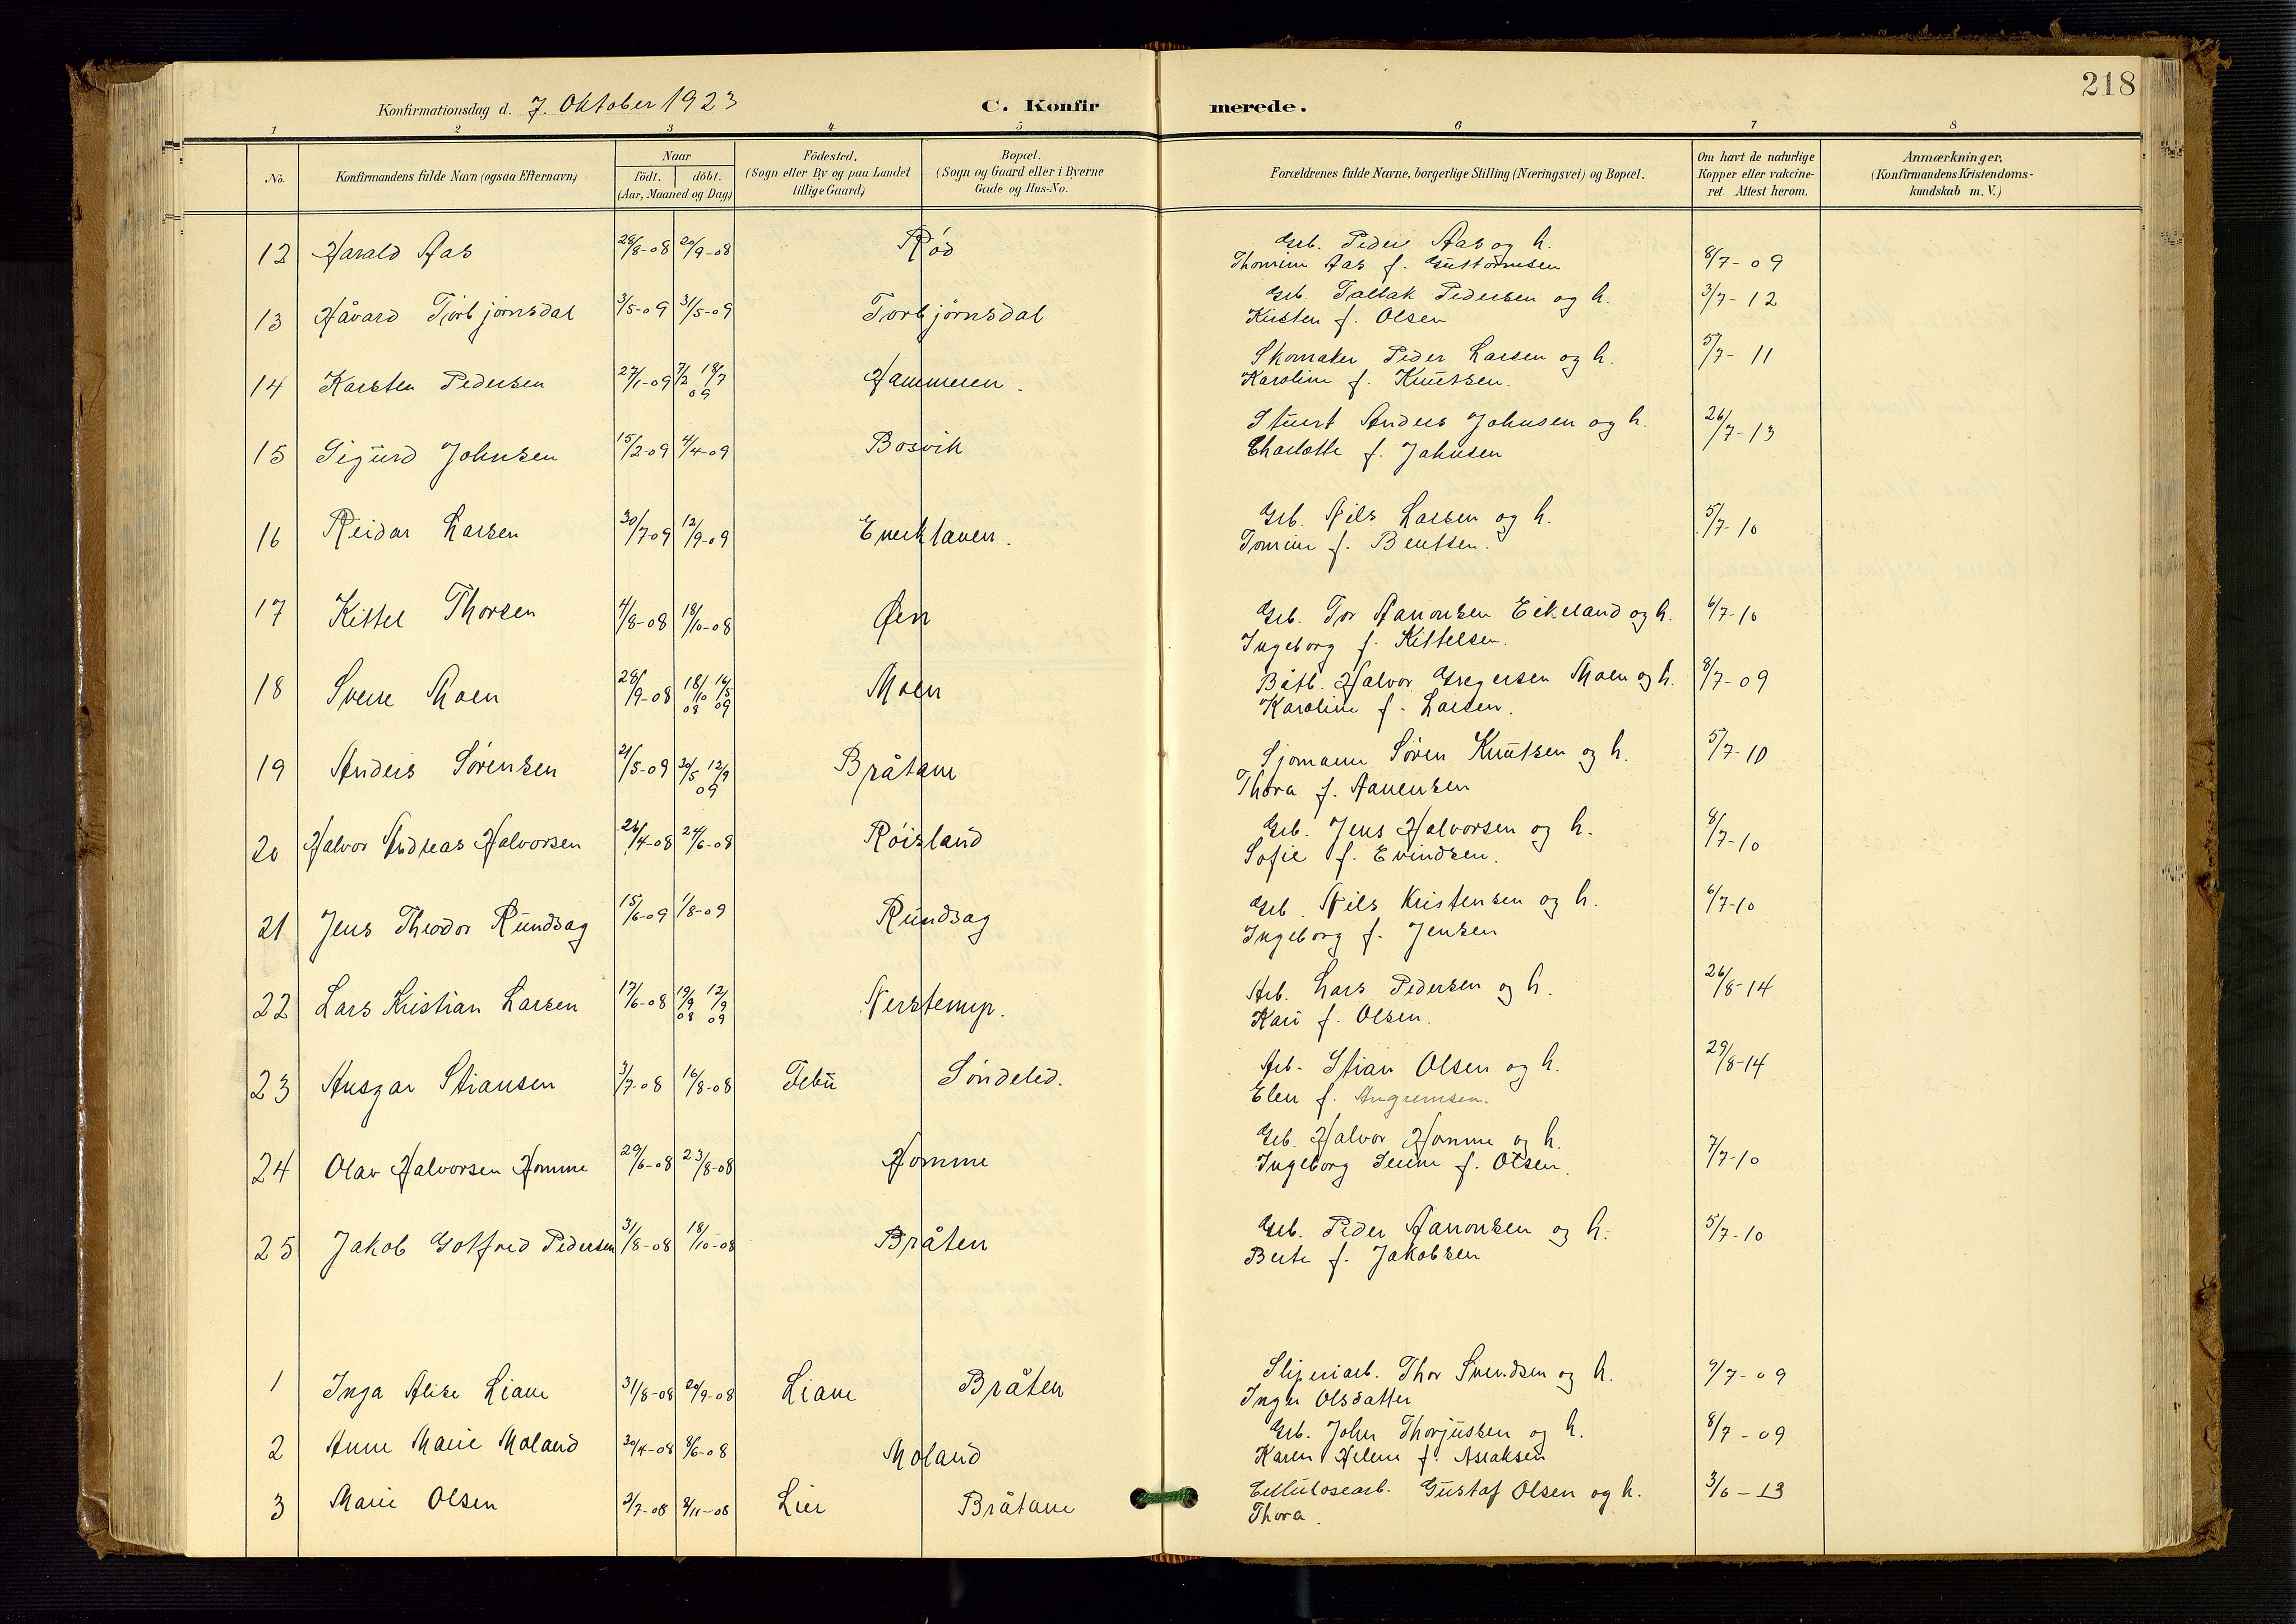 218
Konfirmationsdag d. 7. Oktober 1923 C. Konfir merede.
1 2 3 4 5 6 7 8
No. Konfirmandens fulde Navn (ogsaa Efternavn) Naar födt. döbt. (Aar, Maaned og Dag) Födested. (Sogn eller By og paa Landet tillige Gaard) Bopæl. (Sogn og Gaard eller i Byerne Gade og Hus-No. Forældrenes fulde Navne, borgerlige Stilling (Næringsvei) og Bopæl. Om havt de naturlige Kopper eller vakcineret. Attest herom. Anmærkninger. (Konfirmandens Kristendomskundskab m. V.)
12 Harald Aas 28/8-08 20/9-08 Rød Grb. Peder Aas og h. 8/7-09
Thomine Aas f. Guttormsen
13 Håvard Torbjørnsdal 3/5-09 31/5-09 Torbjørnsdal Grb. Tallak Pedersen og h. 3/7-12
Kirsten f. Olsen
14 Karsten Pedersen 27/1-09 7/2 18/7 09 Hammeren. Skomaker Peder Larsen og h. 5/7-11
Karoline f. Knutsen.
15 Sigurd Johnsen 15/2-09 4/4-09 Bosvik Stuert Anders Johnsen og h. 26/7-13
Charlotte f. Johnsen
16 Reidar Larsen 30/7-09 12/9-09 Enerhaven. Grb. Nils Larsen og h. 5/7-10
Tomine f. Bentsen.
17 Kittel Thorsen 4/8-08 18/10-08 Øen Grb. Tor Aanonsen Eikeland og h. 6/7-10
Ingeborg f. Kittelsen.
18 Sverre Moen 28/9-08 18/10 08 16/5 09 Moen Båtb. Halvor Gregersen Moen og h. 8/7-09
Karoline f. Larsen.
19 Anders Sørensen 21/5-09 30/5 12/9 09 Bråtane Sjømann Søren Knutsen og h. 5/7-10
Thora f. Aanensen
20 Halvor Andreas Halvorsen 26/4-08 24/6-08 Røisland Grb. Jens Halvorsen og h. 8/7-10
Sofie f. Evindsen.
21 Jens Theodor Rundsag 15/6-09 1/8-09 Rundsag Grb. Nils Kristensen og h. 6/7-10
Ingeborg f. Jensen
22 Lars Kristian Larsen 17/6-08 19/9 08 12/9 09 Nerstemp. Arb. Lars Pedersen og h. 26/8-14
Kari f. Olsen.
23 Ansgar Stiansen 3/7-08 16/8-08 Febu Søndeled. Arb. Stian Olsen og h. 29/8-14
Elen f. Angremsen.
24 Olav Halvorsen Homme 29/6-08 23/8-08 Homme Grb. Halvor Homme og h. 7/7-10
Ingeborg f. Olsen.
25 Jakob Gotfred Pedersen 31/8-08 18/10-08 Bråten Grb. Peder Aanonsen og h. 5/7-10
Berte f. Jakobsen
1 Inga Alise Liane 31/8-08 20/9-08 Liane Bråten Sliperiarb. Thor Svendsen og h. 9/7-09
Inger Olsdatter
2 Anne Marie Moland 30/4-08 8/6-08 Moland Grb. John Thorjussen og h. 8/7-09
Karen Helene f. Aslaksen
3 Marie Olsen 2/7-08 8/11-08 Lier Bråtane Cellulosearb. Gustaf Olsen og h. 3/6-13
Thora.